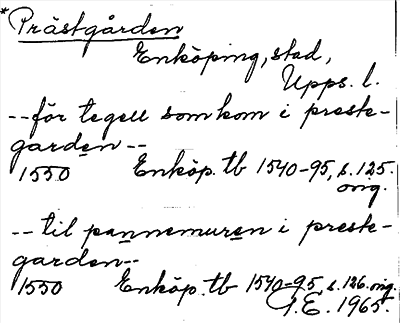 *Prästgården
Enköping, stad,
Upps. l.
--för tegell som kom i preste-
garden--
1550 Enköp. tb 1540-95, s. 125.
orig.
-- til pannemuren i preste-
garden--
1550 Enköp. tb 1540-95, s. 126. orig.
G.E. 1965.